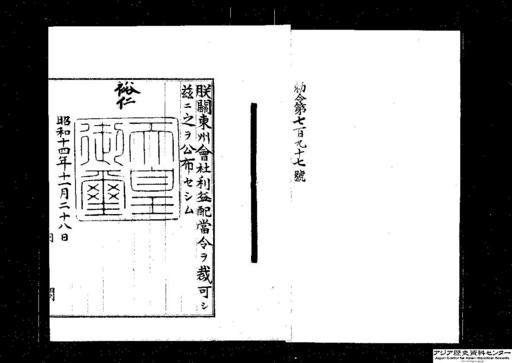 勅令第七百九十七號
朕關東州會社利益配當令ヲ裁可シ
玆ニ之ヲ公布セシム
裕仁
天皇
御璽
昭和十四年十一月二十八日
アジア歴史資料センター
Japan Center for Asian Historical Records